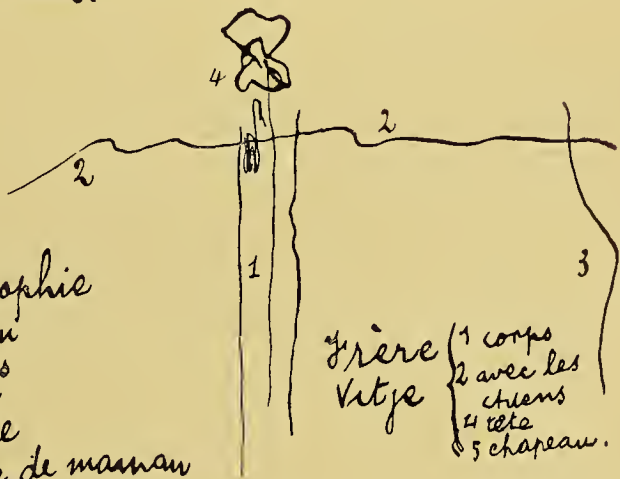 4
2
2
1
3
ophie
s
e
de maman
Frère
Vitje
1 corps
2 avec les
chiens
4 tête
5 chapeau.